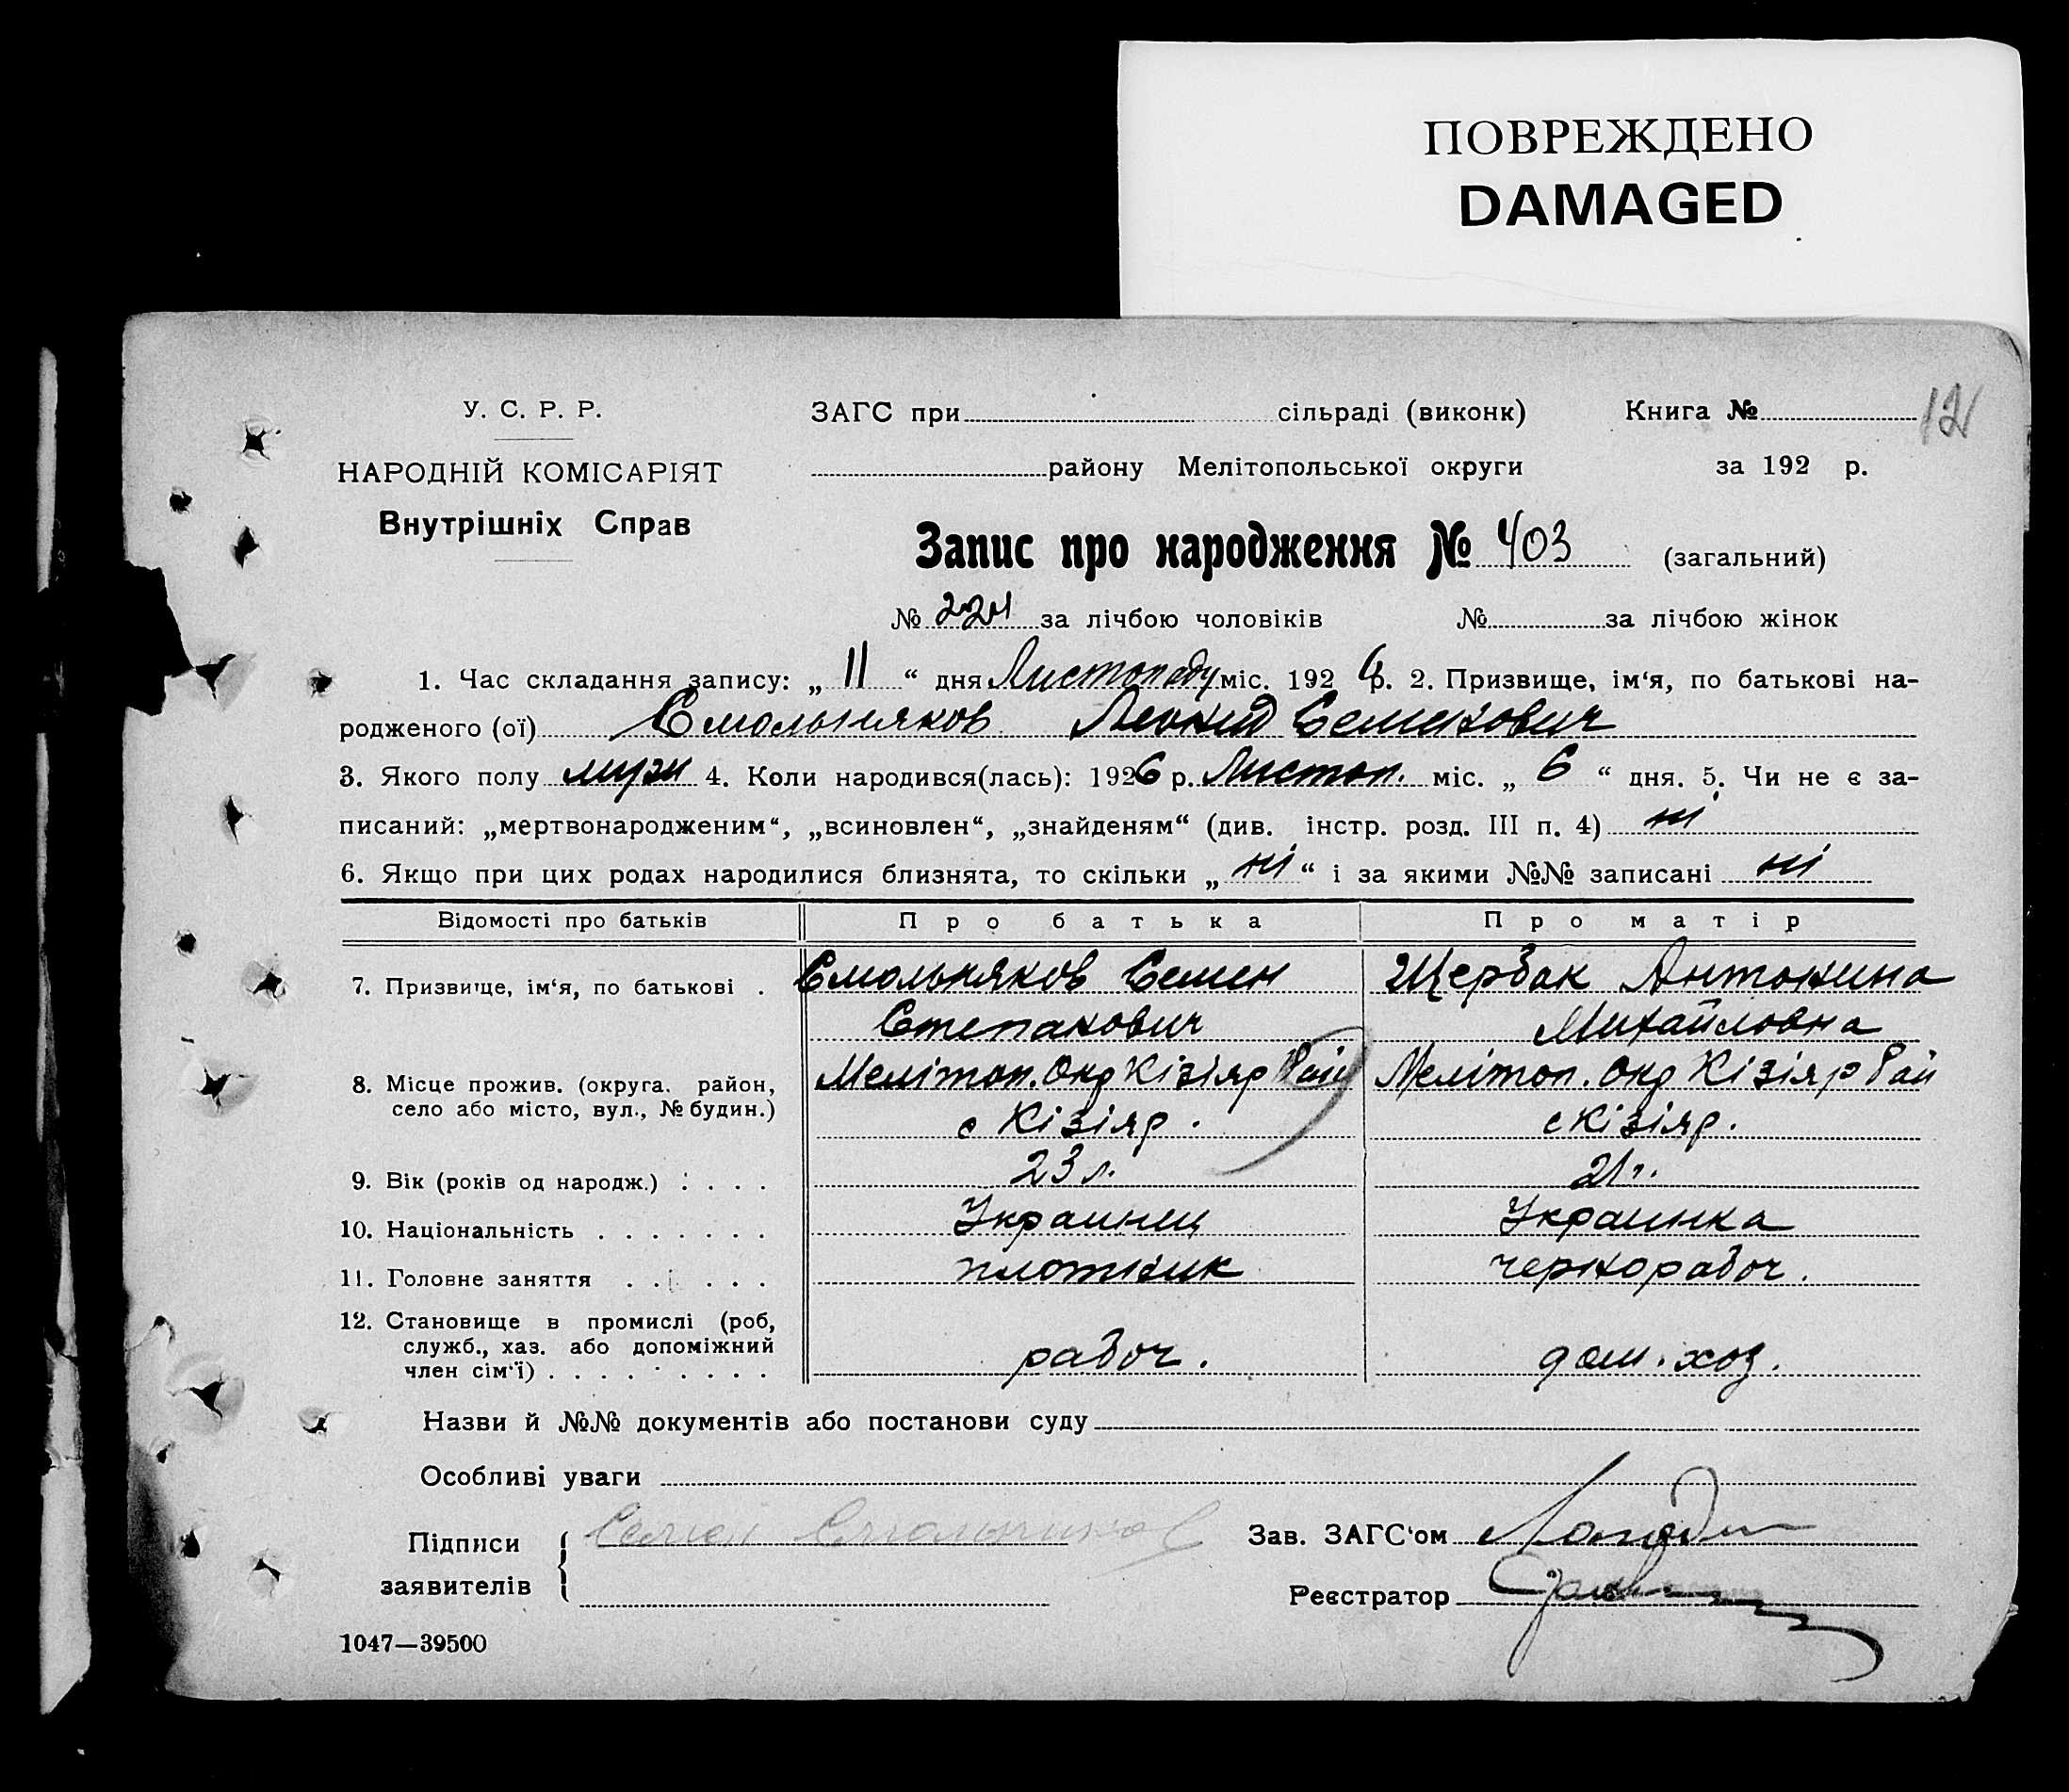 ПОВРЕЖДЕНО
DAMAGED
12
У. С. Р. Р.
НАРОДНІЙ КОМІСАРІЯТ
Внутрішніх Справ
ЗАГС при сільраді (виконк) Книга №
району Мелітопольської округи за 192 р.
Запис про народження № 403 (загальний)
№ 224 за лічбою чоловіків № за лічбою жінок
1. Час складання запису: „ 11 “ дня Листопаду міс. 192 6 р. 2. Призвище, ім‘я, по батькові на-
родженого (ої) Смольняков Леонид Семенович
3. Якого полу мужи 4. Коли народився(лась): 1926 р. Листоп. міс. „ 6 “ дня. 5. Чи не є за-
писаний: „мертвонародженим“, „всиновлен“, „знайденям“ (див. інстр. розд. III п. 4) ні
6. Якщо при цих родах народилися близнята, то скільки „ ні “ і за якими №№ записані ні
Відомості про батьків Про батька Про матір
7. Призвище, ім‘я, по батькові . Смольняков Семен Щербак Антонина
Степанович Михайловна
8. Місце прожив. (округа, район, Мелітоп. Окр Кізіяр Рай Мелітоп. Окр Кізіяр Рай
село або місто, вул., № будин.) с Кізіяр. с Кізіяр.
9. Вік (років од народж.) . . . . 23 л. 21 г.
10. Національність . . . . . . . Украинец Украинка
11. Головне заняття . . . . . . плотник чернорабоч.
12. Становище в промислі (роб,
служб., хаз. або допоміжний
член сім‘ї) . . . . . . . . рабоч. дом. хоз.
Назви й №№ документів або постанови суду
Особливі уваги
Підписи Семен Смольняков Зав. ЗАГС‘ом
заявителів Реєстратор
1047—39500